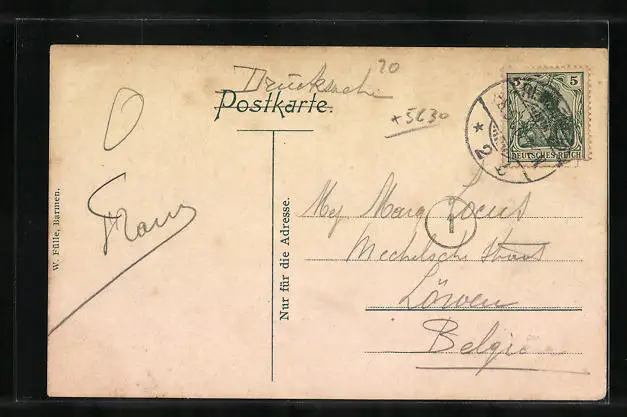 Drucksache 20
Postkarte.
+5630
5
DEUTSCHES REICH
* 2
Franz
W. Fülle, Barmen.
Nur für die Adresse.
Mej Marg
1
Mechelsche
Löwen
Belgie